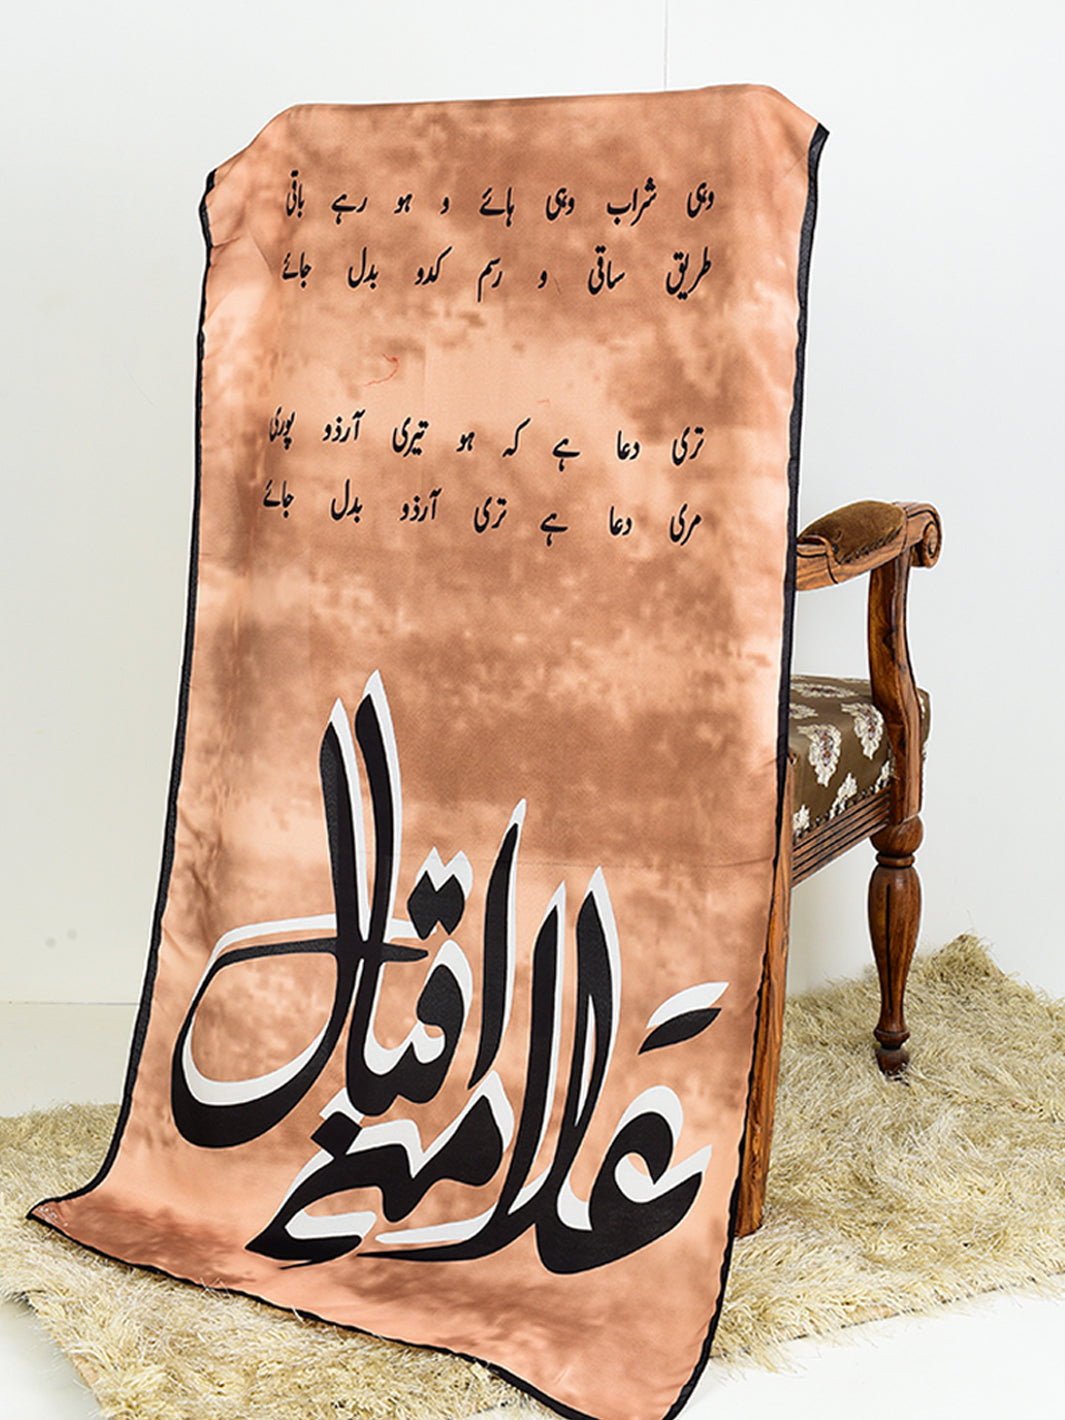 وہی شراب وہی ہائے و ہو رہے باقی
طریق ساقی و رسم کدو بدل جائے
تری دعا ہے کہ ہو تیری آرذو پوری
مری دعا ہے تری آرذو بدل جائے
علامہ
اقبال